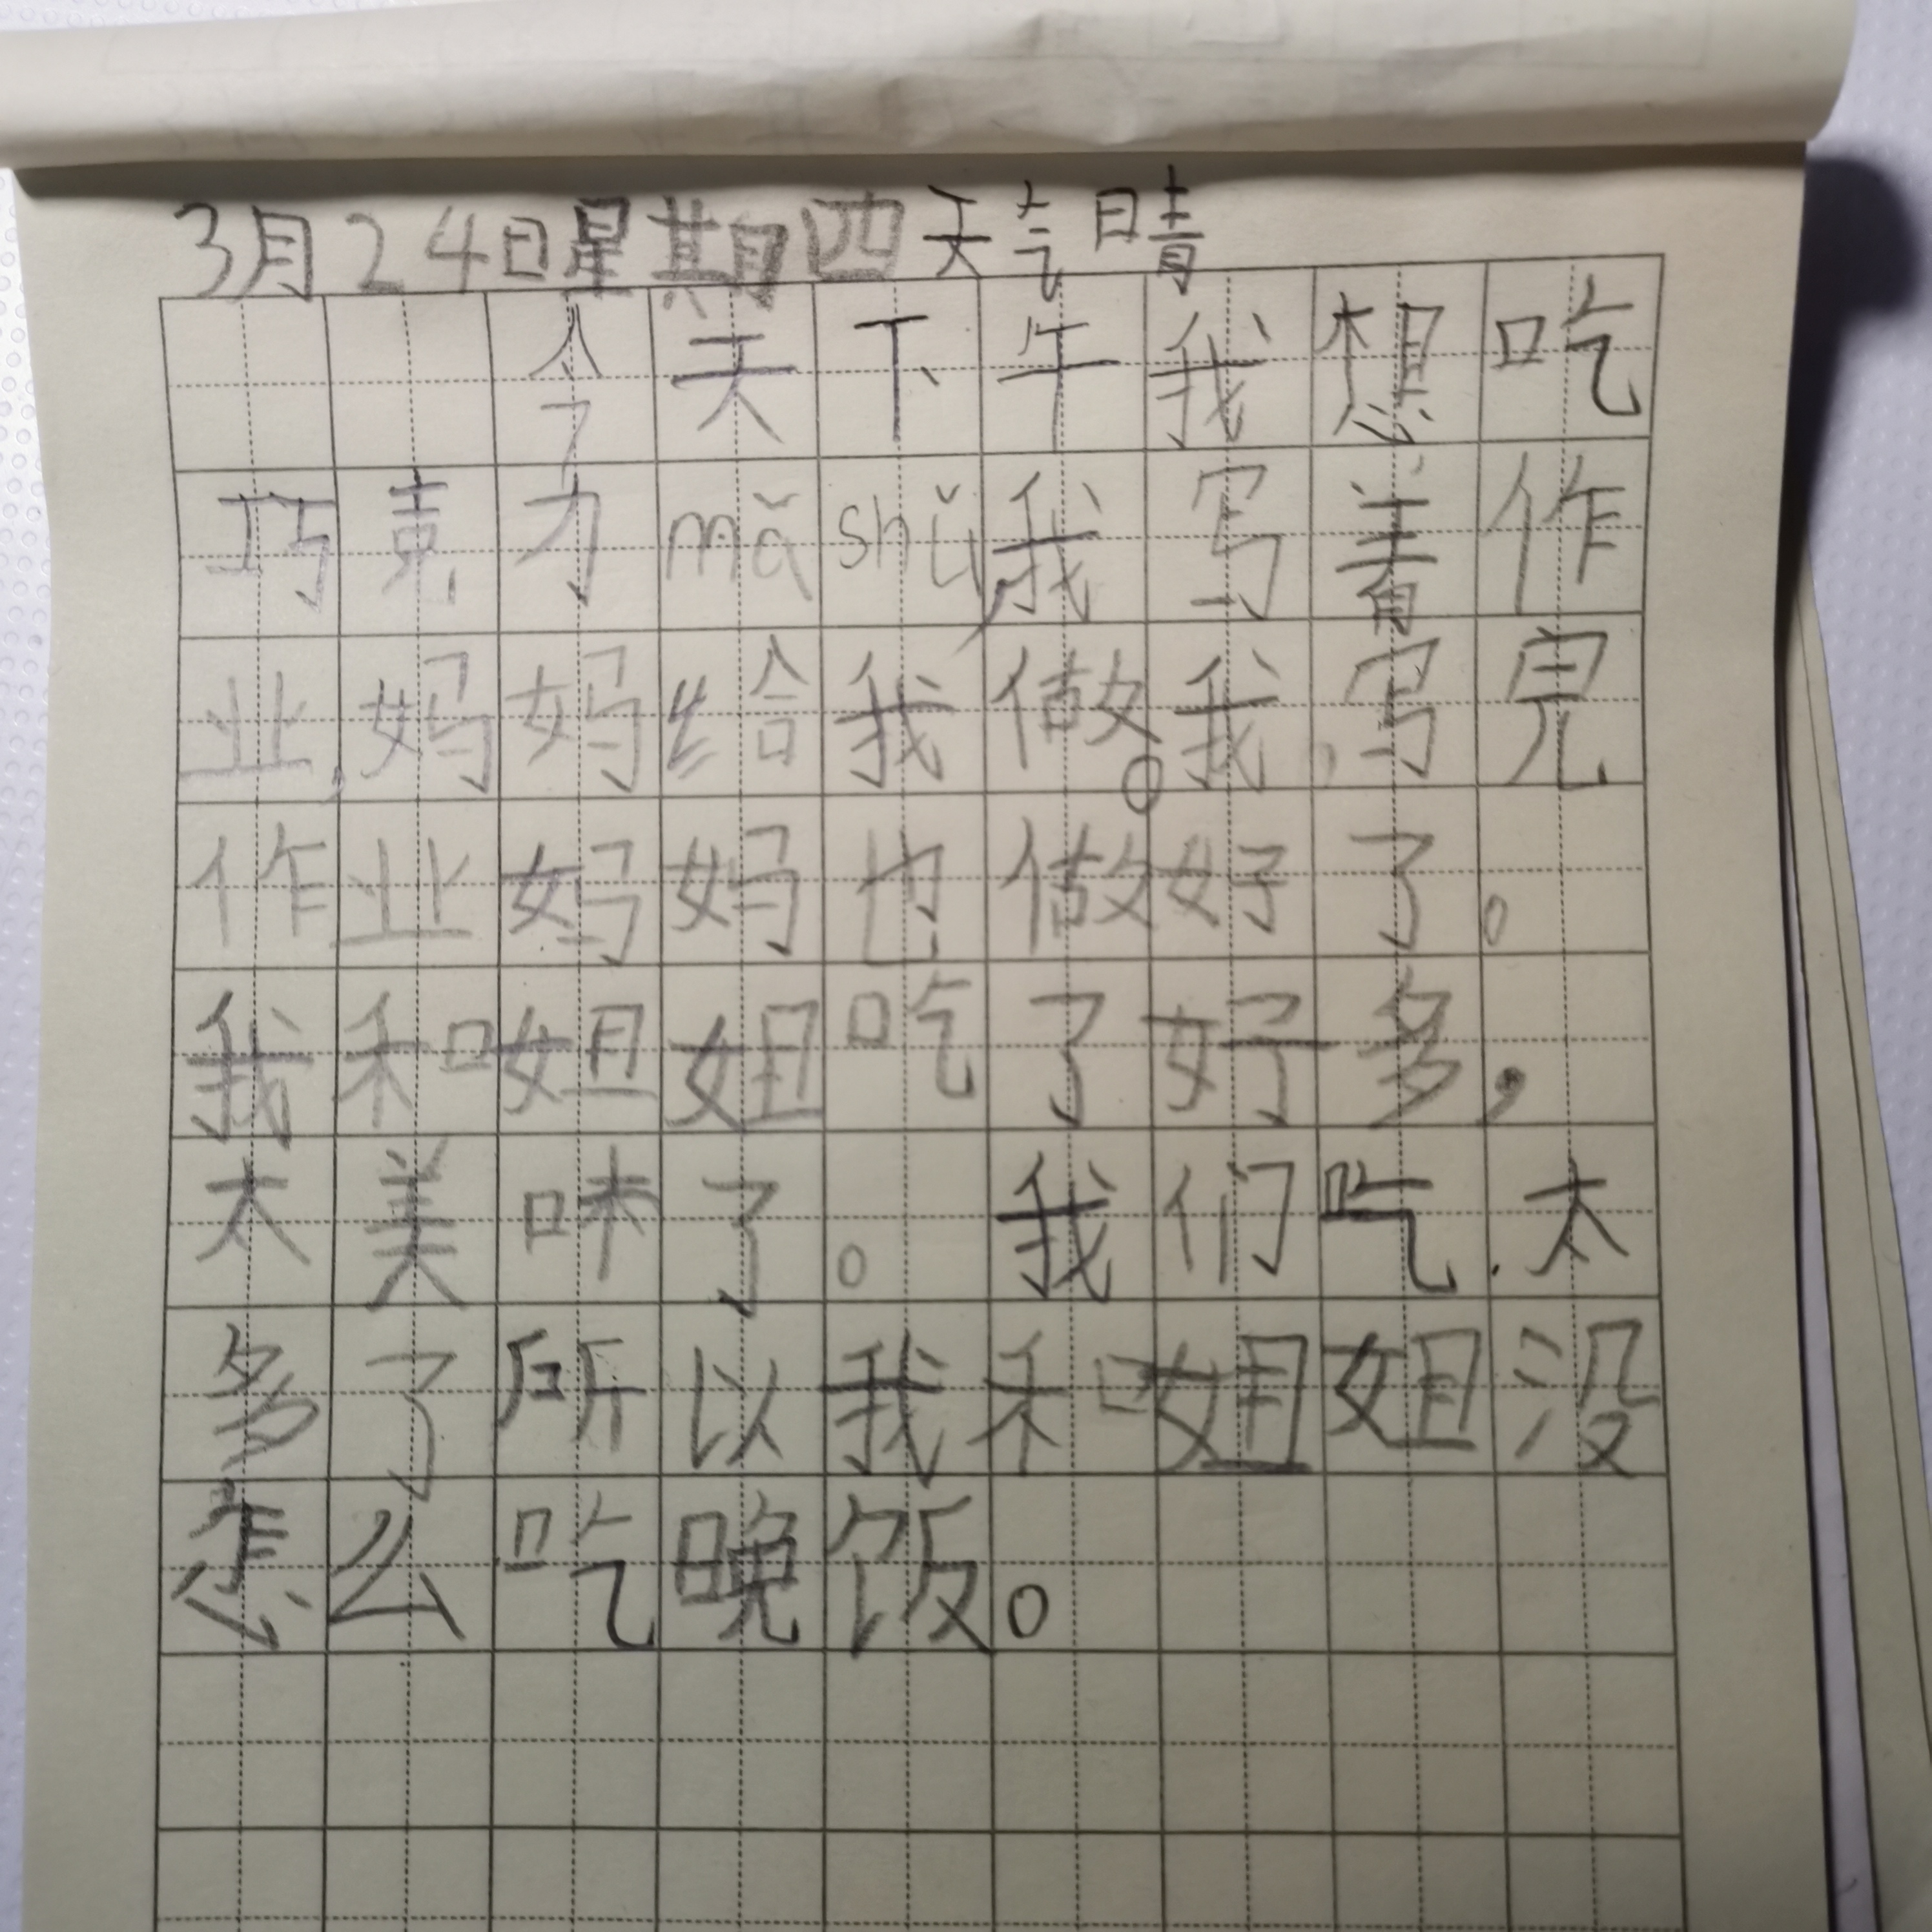 3月24日星期四天气晴
今天下午我想吃
巧克力mǎ shǔ,我写着作
业,妈妈给我做。我写完
作业妈妈也做好了。
我和姐姐吃了好多,
太美味了。我们吃太
多了所以我和姐姐没
怎么吃晚饭。